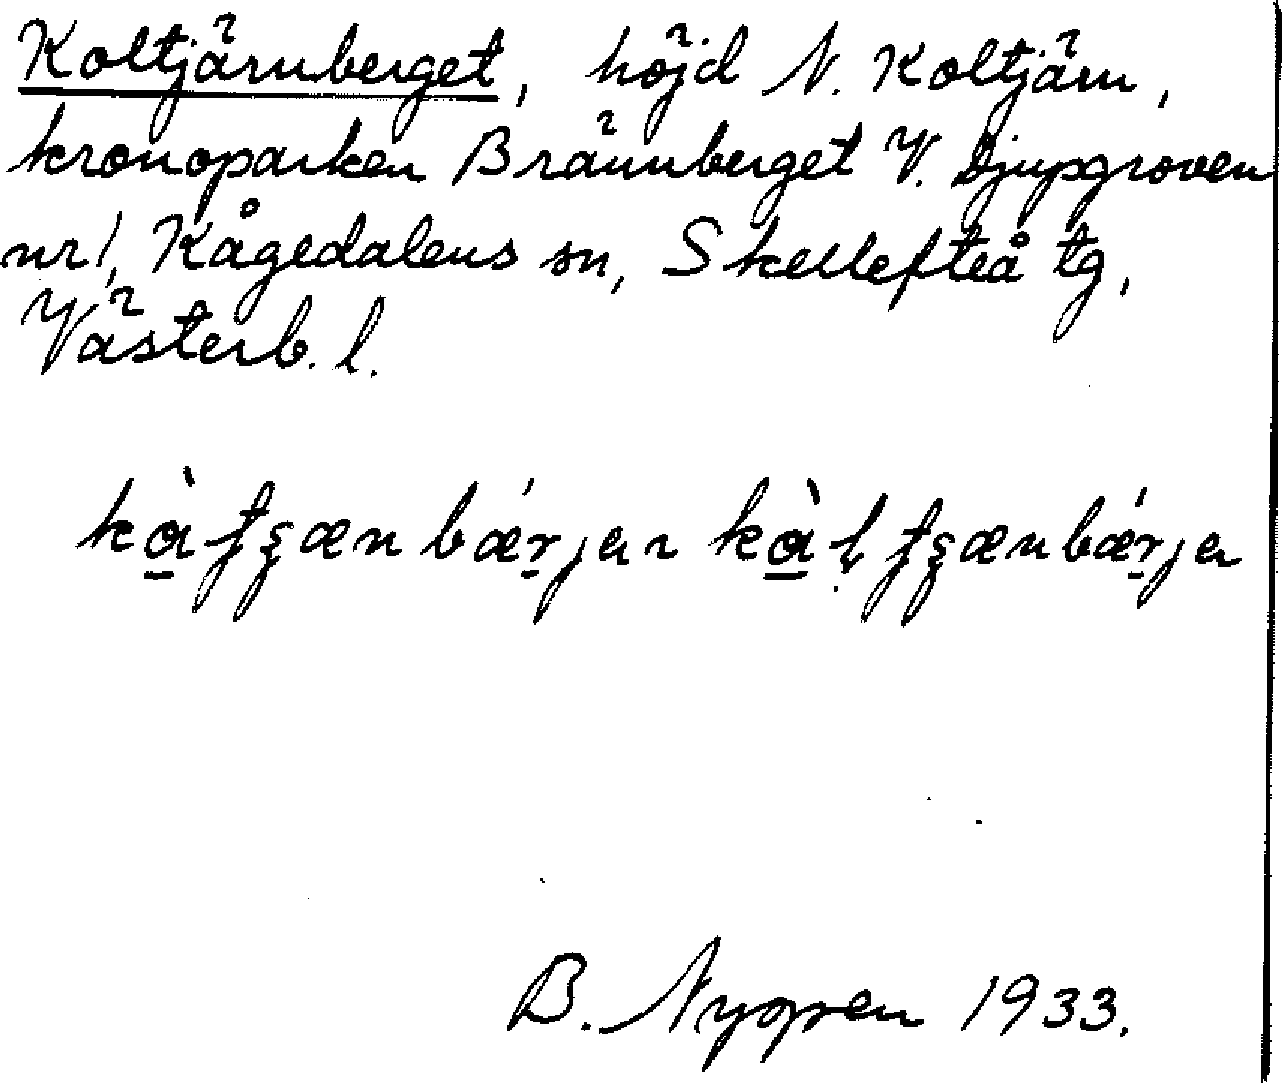 Koltjärnberget, höjd N. Koltjärn,
kronoparken Brännberget V. Djupgroven
nr 1, Kågedalens sn, Skellefteå tg,
Västerb. l.
B. Nygren 1933.